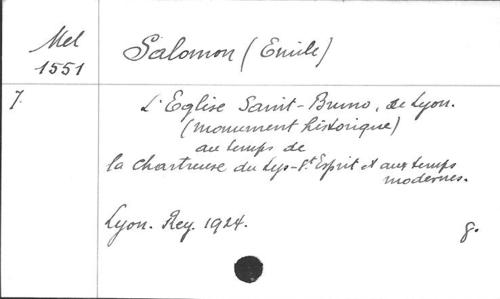 Mel
1551
Salomon (Emile)
7.
L'Eglise Saint-Bruno, de Lyon.
(monument historique)
au temps de
la Chartreuse du Lys-St Esprit et aux temps
modernes.
Lyon. Rey. 1924.
8.